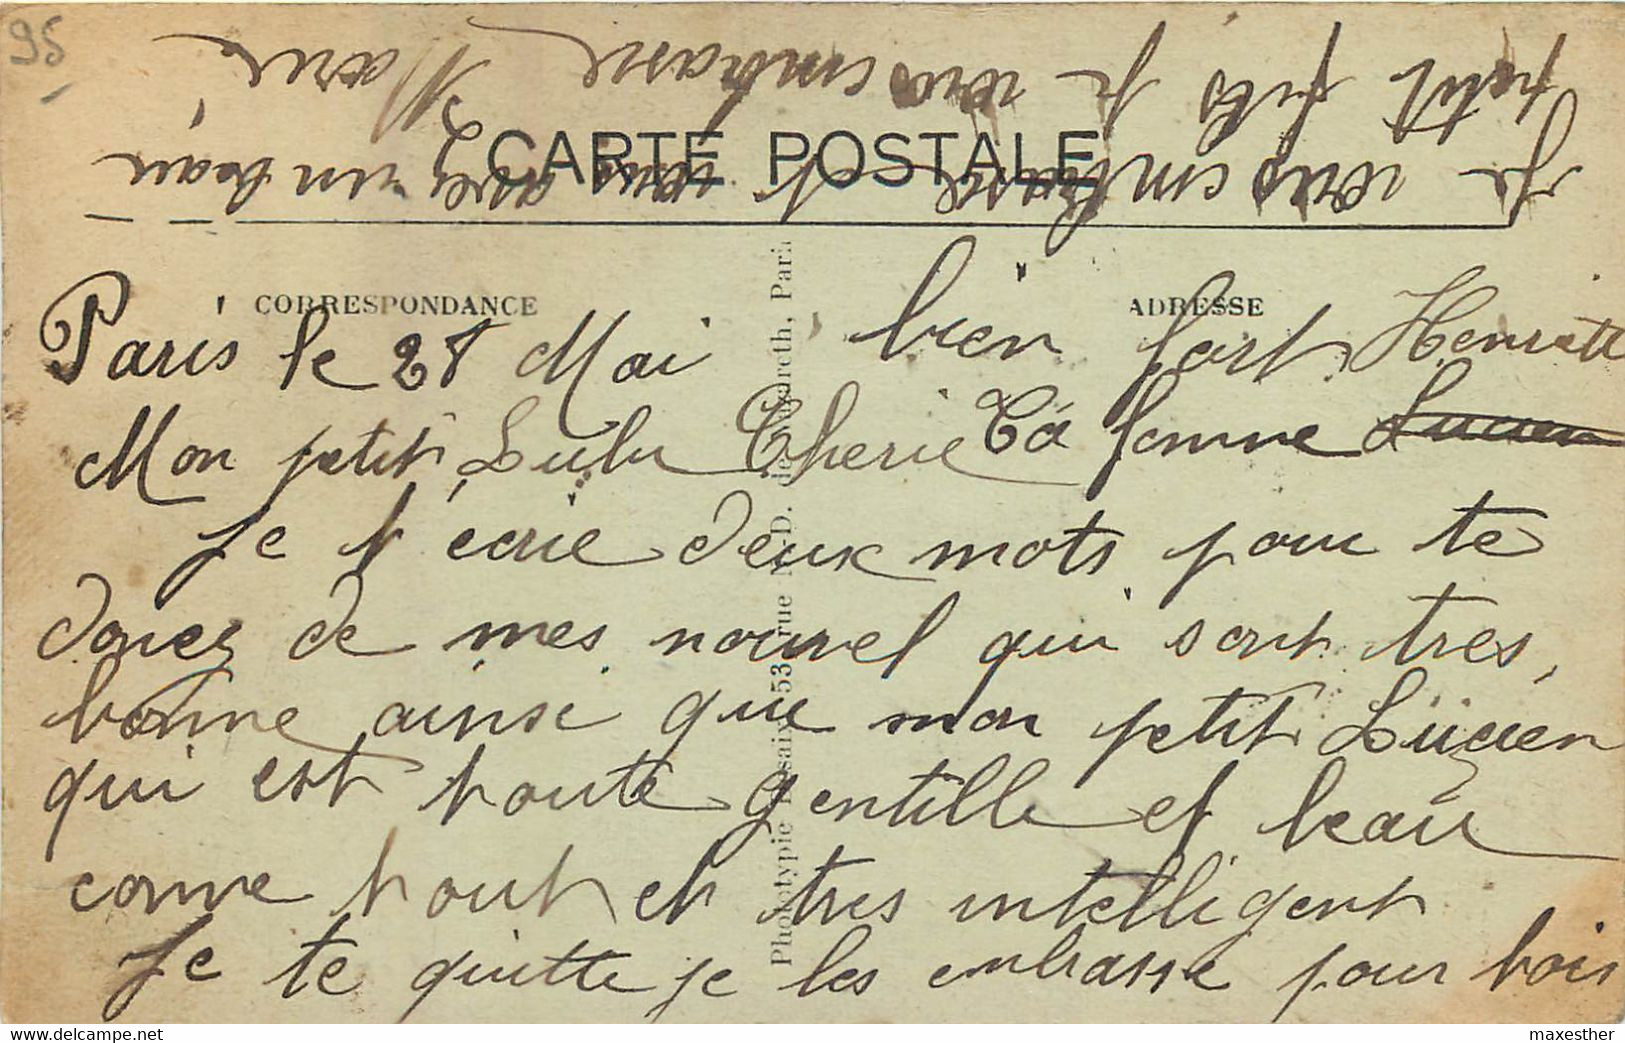 95
Je vous embrasse et vous avez un beau
petit fils je vous embrasse Marie
CARTE POSTALE
CORRESPONDANCE
ADRESSE
Paris le 28 Mai bien fort Henriette
Mon petit Lulu Cherie Ta femme Lucien
Je t'écrie deux mots pour te
donez de mes nouvel qui sont tres
bonne ainsi que mon petit Lucien
qui est toute gentille et beau
comme tout et tres intelligent
Je te quitte je les embrasse pour toi
Phototypie Desaix, 53, rue N.-D. de Nazareth, Paris
delcampe.net
maxesther